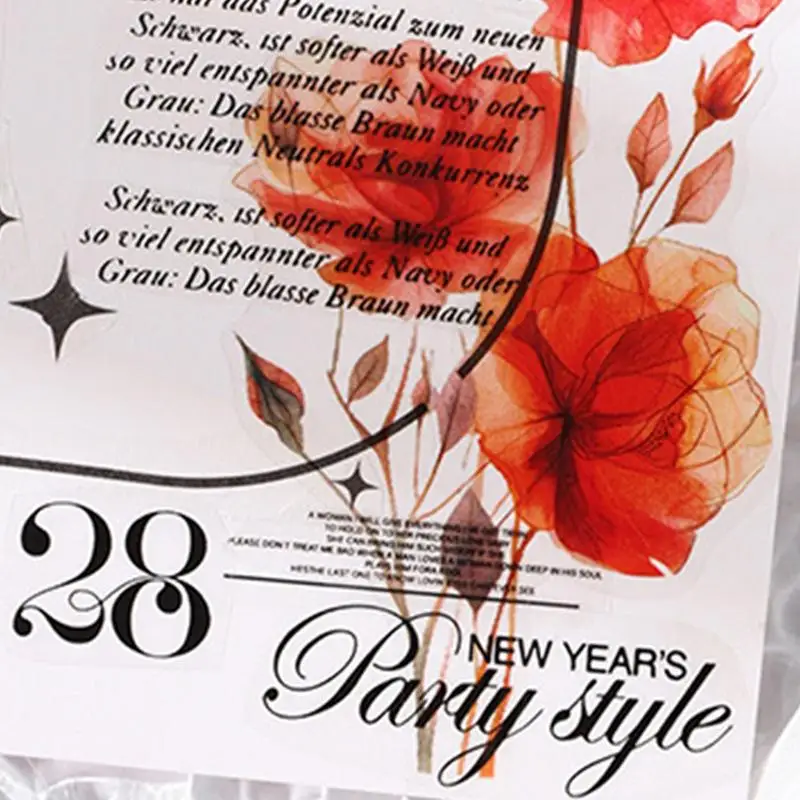 das Potenzial zum neuen
Schwarz. ist softer als Weiß und
so viel entspannter als Navy oder
Grau: Das blasse Braun macht
klassischen Neutrals Konkurrenz
Schwarz. ist softer als Weiß und
so viel entspannter als Navy oder
Grau: Das blasse Braun macht
28
A WOMAN I WILL GIVE EVERYTHING
TO HOLD ON TO HER PRECIOUS LOVE
SHE CAN BRING HIM SUCH IF SHE
PLEASE DON'T TREAT ME BAD WHEN A MAN LOVED A WOMAN DOWN DEEP IN HIS SOUL
PLAYS HIM FOR A FOOL
HES THE LAST ONE TO KNOW LOVIN EVER SEE
NEW YEAR'S
Party style